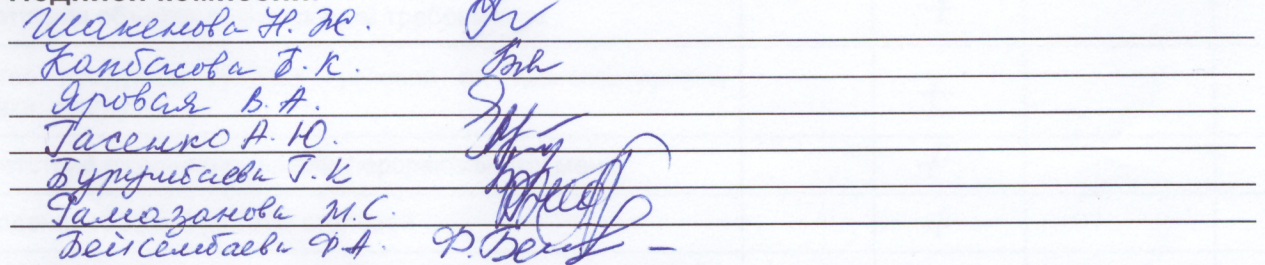 Подписи комиссии
Шакенова Н. Ж.
Капбасова Б. К.
Яровая В. А.
Гасенко А. Ю.
Бурумбаева Г. К
Рамазанова Ж. С.
Бейсембаева Ф А. Ф. Бейс